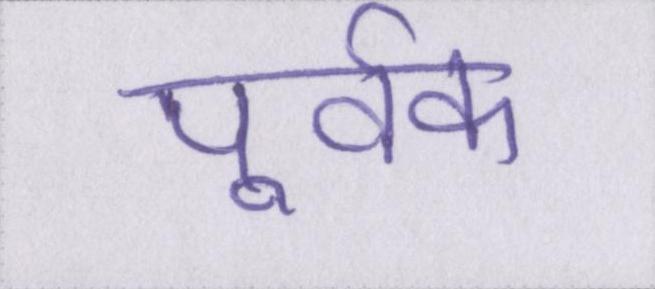 पूर्वक